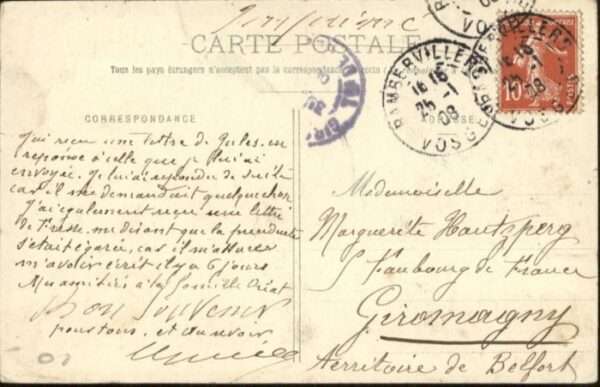 CARTE POSTALE
Tous les pays étrangers n'acceptent pas la correspondance
RAMBERVILLERS
16 15
25 -1
08
VOSGES
10
CORRESPONDANCE
J'ai reçu une lettre de Jules en
reponse à celle que je lui ai
envoyée. Je lui ai repondu de suite
car il me demandait quelque chose
J'ai egalement reçu une lettre
de Fresse me disant que la précédente
s'était égarée, car il m'assure
m'avoir écrit il y a 6 jours
Mes amitiés à la famille
Bon Souvenir
pour tous, et au revoir
Mademoiselle
Marguerite Hantzperg
Faubourg de France
Giromagny
Territoire de Belfort